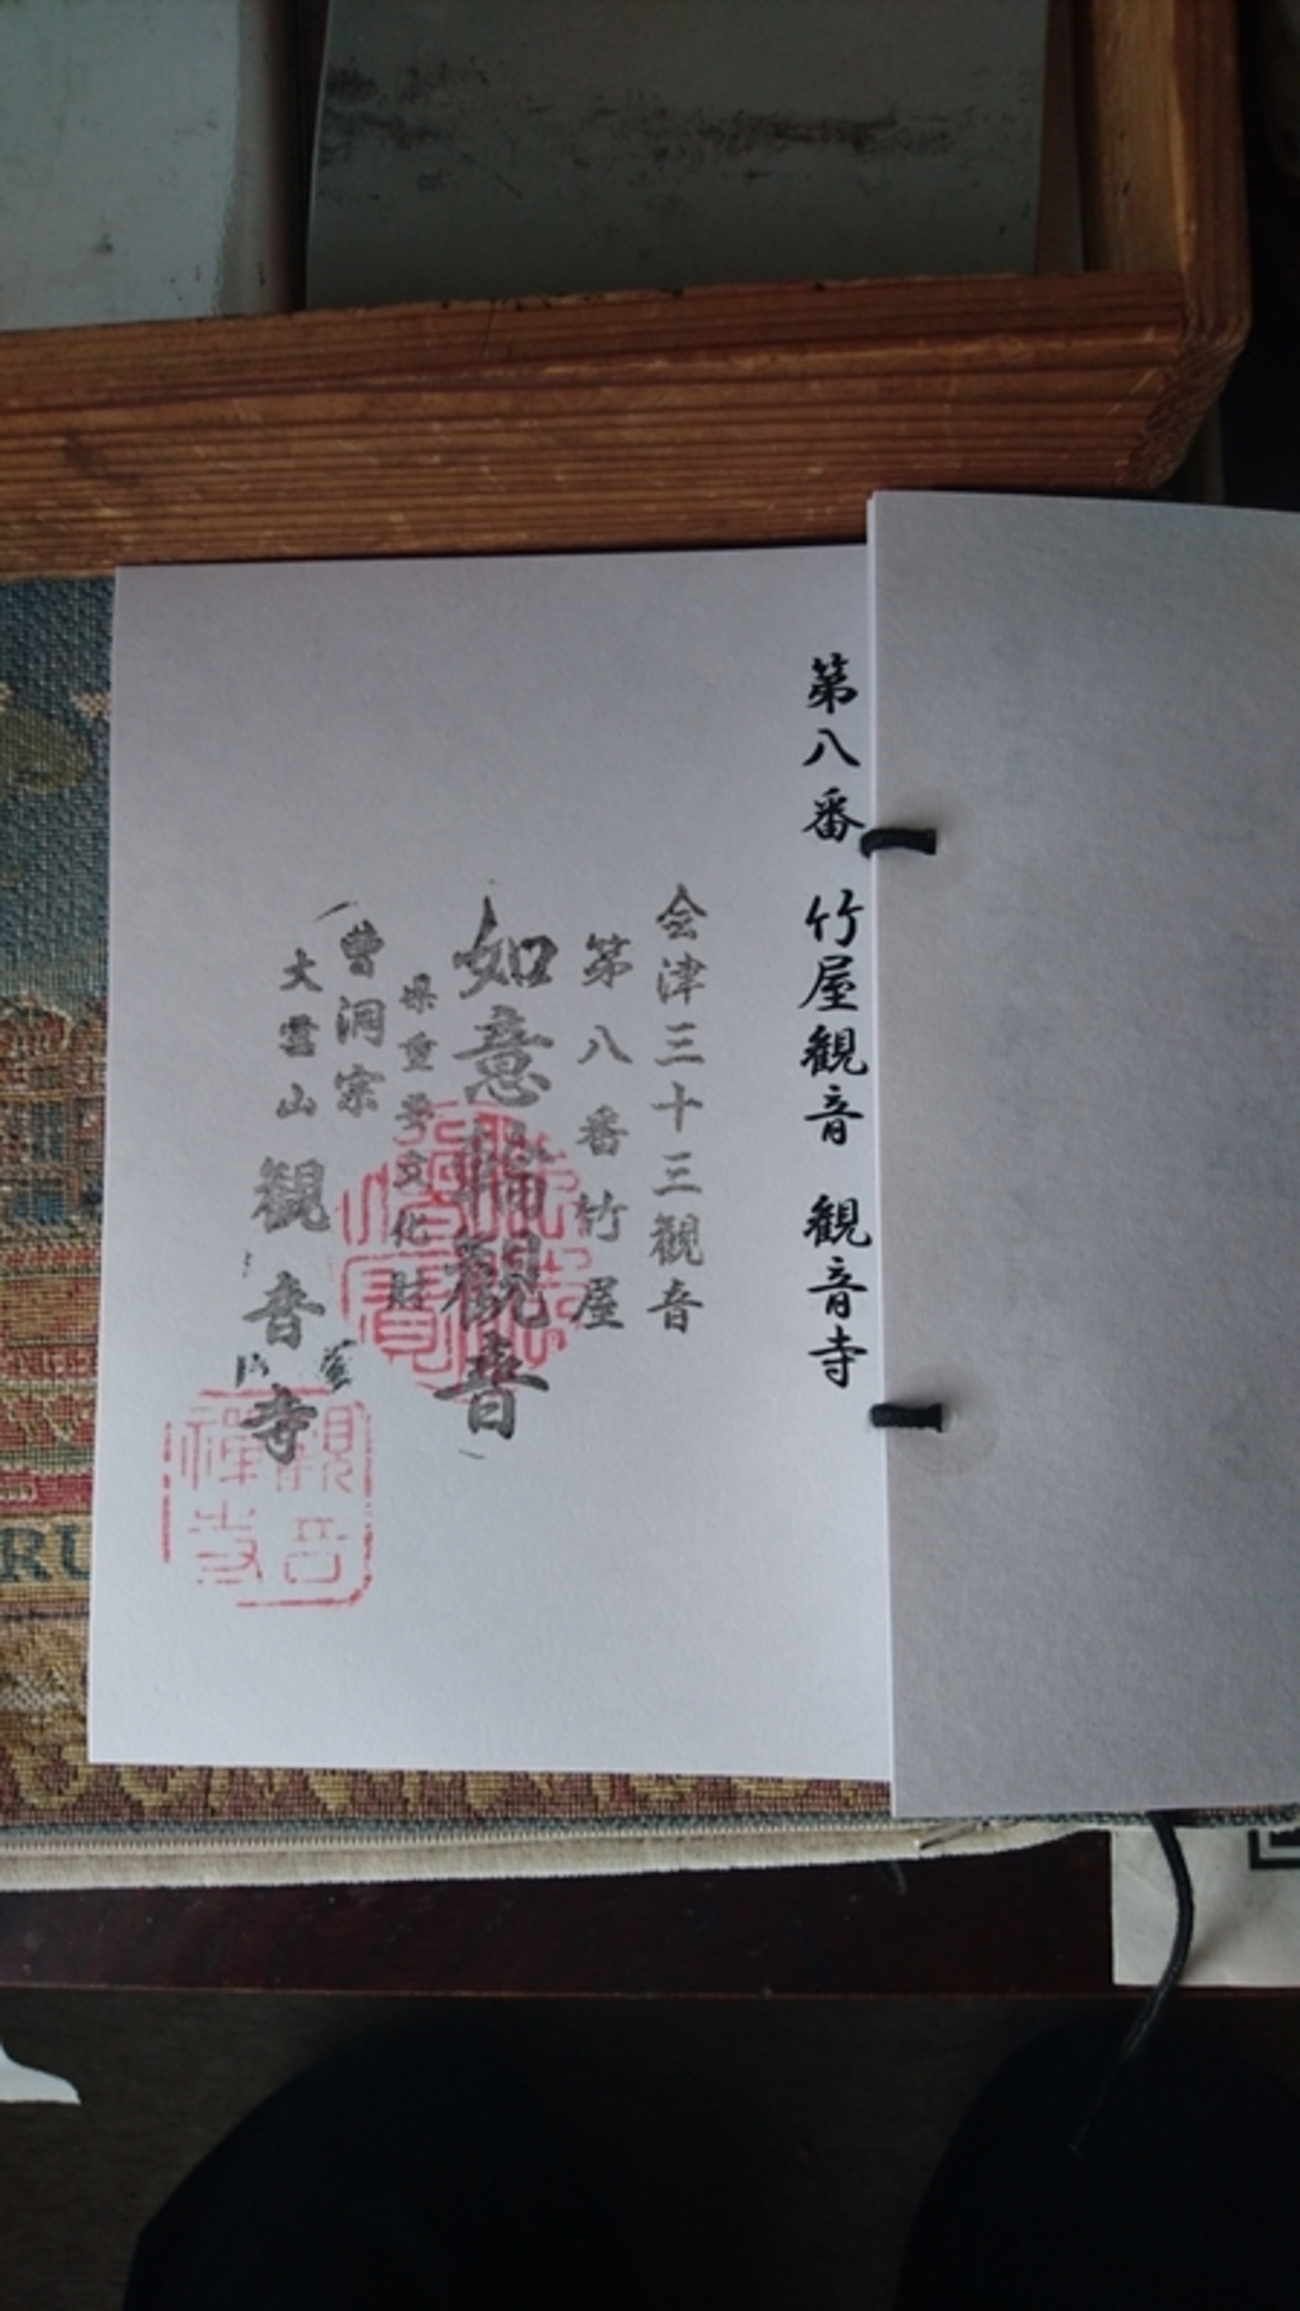 第八番 竹屋観音 観音寺
会津三十三観音
第八番竹屋
如意輪観音
県重要文化財
曹洞宗
大雲山 観音寺
観音禅寺
RU